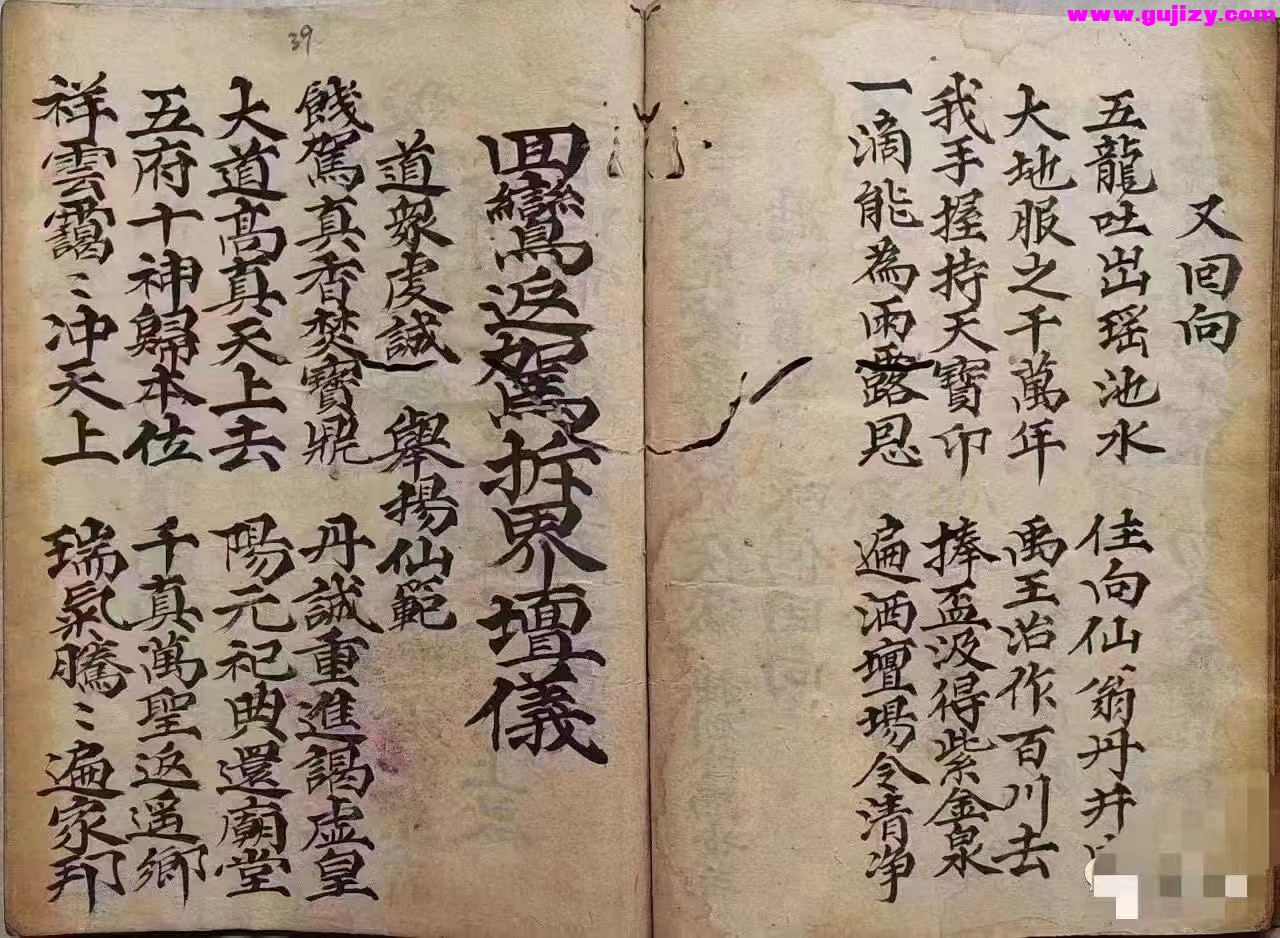 www.gujizy.com
又回向
五龍吐出瑶池水 住向仙翁丹井
大地服之千萬年 禹王治作百川去
我手握持天寶印 捧盃汲得紫金泉
一滴能為雨露恩 遍洒壇場令清净
39
回鸞返駕拆界壇儀
道衆虔誠 舉揚仙範
餞駕真香焚寶鼎 丹誠重進謁虛皇
大道高真天上去 陽元祀典還廟堂
五府十神歸本位 千真萬聖返遥鄉
祥雲靄〻冲天上 瑞氣騰〻遍家邦